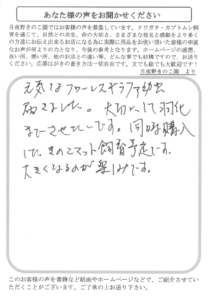 あなた様の声をお聞かせください
月夜野きのこ園ではお客様の声を募集しています。クワガタ・カブトムシ飼
育を通じて、自然との共生、命の大切さ、さまざまな発見と感動をより多く
の方達にお伝え出来るお店になる為に実際に用品をお使い頂いた皆様の率直
なお声が何よりの力となり、今後の参考となります。ホームページの感想、
良い所、悪い所、他のお店との違い等、どんな事でも結構ですので、お送り
ください。応募はがきの書き方は一切自由です。文でも絵でも大歓迎です!
月夜野きのこ園 より
元気なフォーレスギラファ幼虫
届きました。大切にして羽化
させたいです。同時購入
した、きのこマット飼育予定です。
大きくなるのが楽しみです。
このお客様の声を書籍など紙面やホームページなどで、ご紹介させてい
ただくことがございます。ご了承の上お送り下さい。